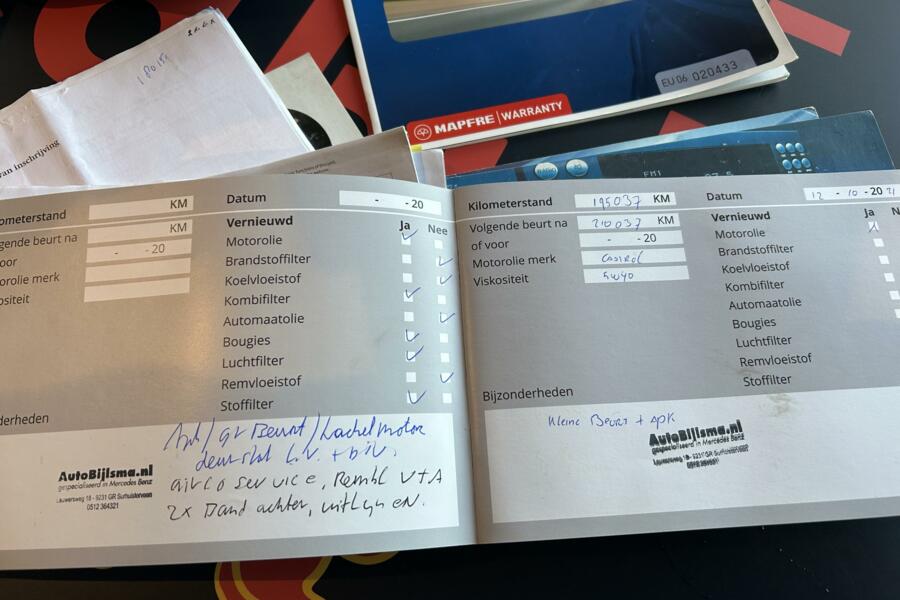 180151
van inschrijving
EU 06 020433
MAPFRE | WARRANTY
FM1
ometerstand KM
Datum - - 20
gende beurt na KM
voor - - 20
orolie merk
ositeit
Vernieuwd Ja Nee
Motorolie
Brandstoffilter
Koelvloeistof
Kombifilter
Automaatolie
Bougies
Luchtfilter
Remvloeistof
Stoffilter
derheden
gr Beurt / kachelmotor
airco service, Rembl V+A
2x Band achter, uitlijnen.
AutoBijlsma.nl
gespecialiseerd in Mercedes Benz
Lauwersweg 18 - 9231 GR Surhuisterveen
0512 364321
Kilometerstand 195037 KM
Datum 12 - 10 - 20 21
Volgende beurt na 210037 KM
of voor - - 20
Motorolie merk Castrol
Viskositeit 5W40
Vernieuwd Ja
Motorolie
Brandstoffilter
Koelvloeistof
Kombifilter
Automaatolie
Bougies
Luchtfilter
Remvloeistof
Stoffilter
Bijzonderheden
Kleine Beurt + APK
AutoBijlsma.nl
gespecialiseerd in Mercedes Benz
Lauwersweg 18 - 9231 GR Surhuisterveen